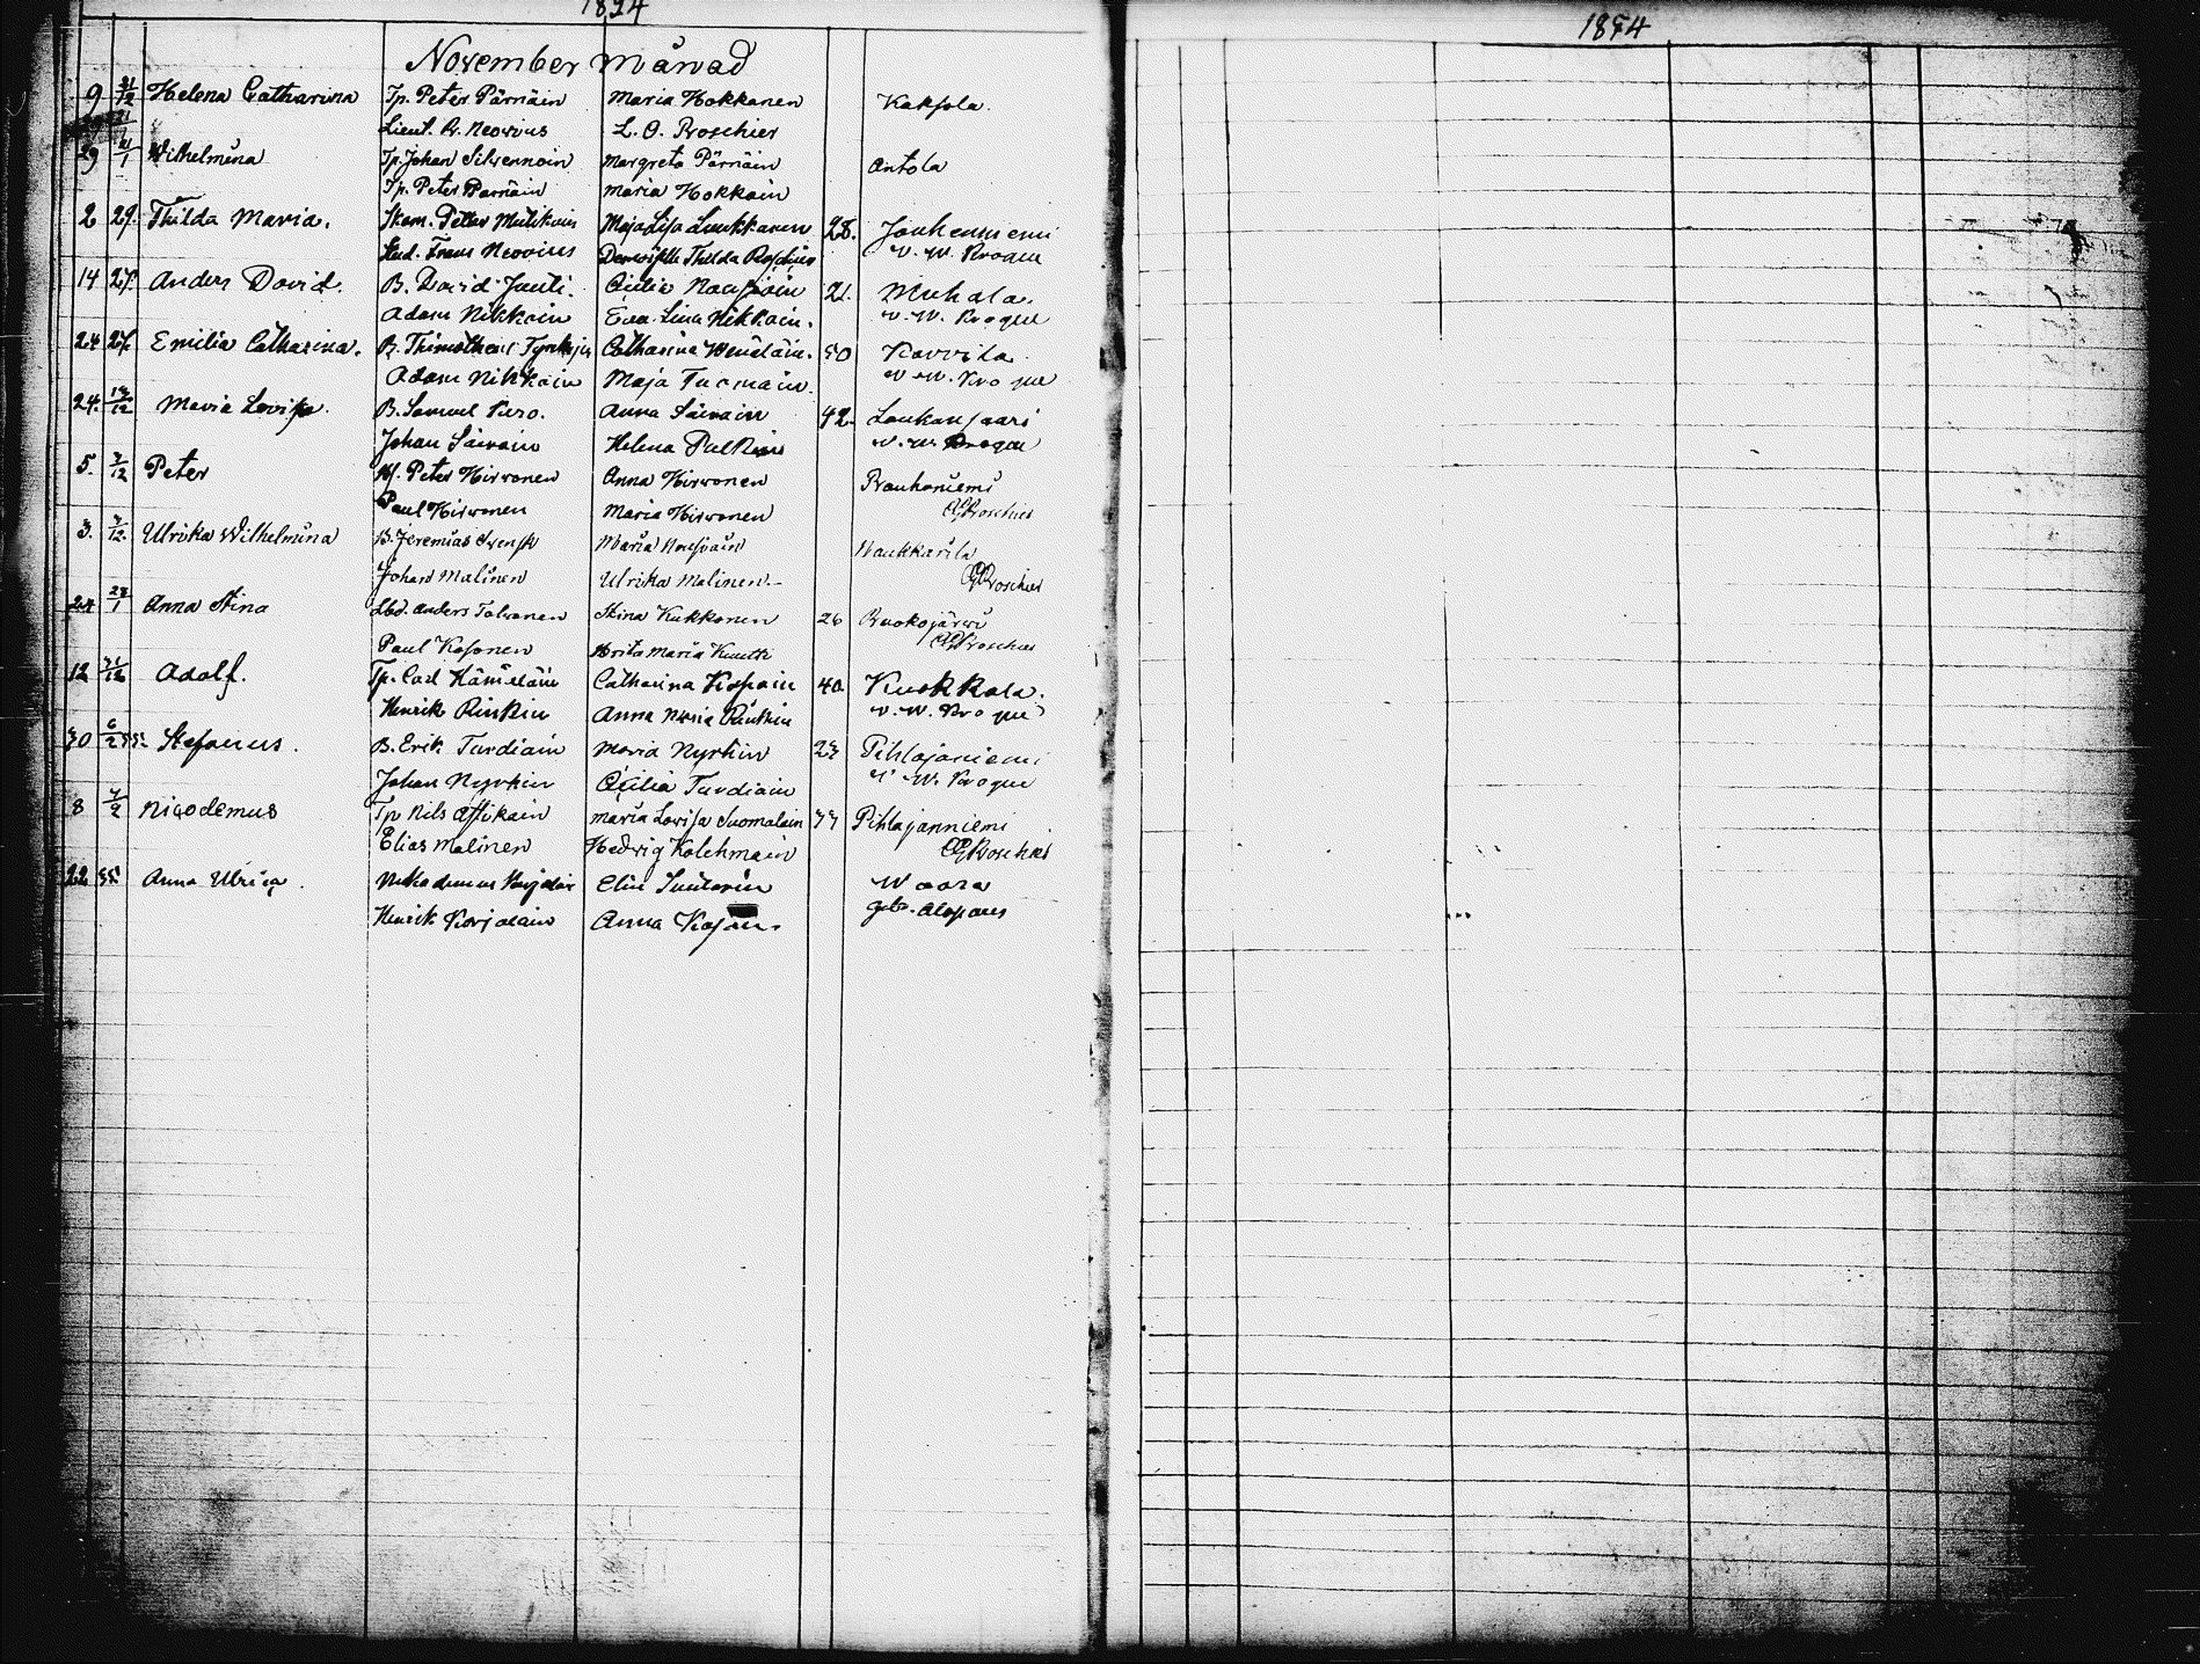 1854
1854
November månad
9 31/12 Helena Catharina Tp. Peter Pärnäin Maria Hokkanen Kaksola.
Lieut. R. Neovius L. O. Roschier
29 21/1 Wilhelmina Tp. Johan Silvennoin Margreta Pärnäin Antola
Tp. Peter Parnäin Maria Hokkain
2 29. Thilda Maria. Petter Mutikain Maja Lisa Luukkanen 28. Jouhenniemi
Stud. Frans Neovius Thilda Roschier v. W. Krogue
14 27. Anders David. B. David Juuti. Cicilia Nousiain 21. Muhala.
Adam Nikkain Eva Lisa Nikkain. v. W. Krogue
24 27. Emilia Catharina. B. Thimotheus Catharina Wenäläin. 50 Karvila
Adam Nikkain Maja Tuomain v. W. Krogue
24. 12 Maria Lovisa. B. Samuel Puro. Anna Säiväin 42. Loukansaari
Johan Säiväin Helena Pulkin v. W. Krogue
5. 3/12 Peter Peter Hirvonen Anna Hirvonen Rauhaniemi
Paul Hirvonen Maria Hirvonen Roschier
3. 3/12. Ulrika Wilhelmina B. Jeremias Svensk Maria Nousiain Naukkarila
Johan Malinen Ulrika Malinen. Roschier
24 28/1 Anna Stina Lbd. Anders Tolvanen Stina Kukkonen 26 Ruokojärvi
Paul Kosonen Brita Maria Kuutti Roschier
12 31/12 Adolf. Tp. Carl Hämäläin Catharina Kospain 40. Kuokkala.
Henrik Rinkin Anna Maria Rinkin v. W. Krogue
30 6/2 55. Stefanus. B. Erik Turdiain Maria Nyrkin 23 Pihlajaniemi
Johan Nyrkin Cicilia Turdiain v. W. Krogue
8 4/2 Nicodemus Tp Nils Attikain Maria Lovisa Suomalain 33 Pihlajanniemi
Elias Malinen Hedvig Kolehmain Roschier
22 55. Anna Ulrica. Nikodemus Karjalain Elin Suutarin Waara
Henrik Karjalain Anna Kosoin. Alopaeus